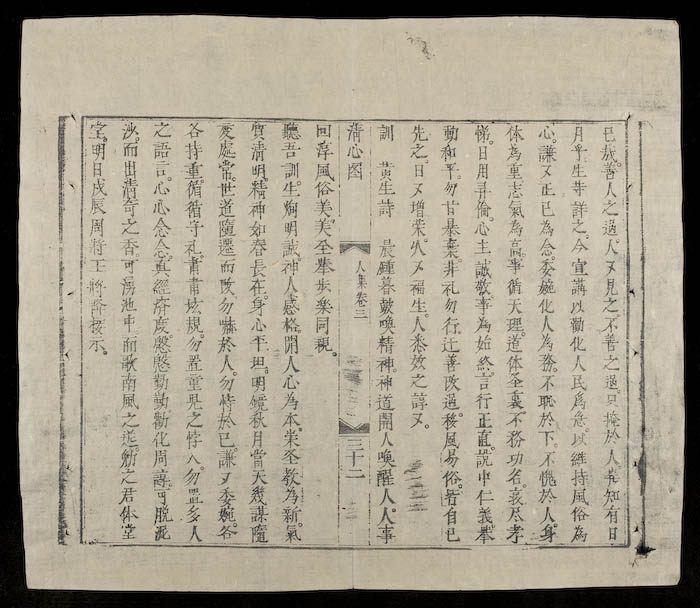 已哉。善人之過。人又見之。不善之過。只掩於人。豈知有日
月乎。生并詳之。今宣講以勸化人民為急。以維持風俗為
心。謙又正已為念。委婉化人為務。不恥於下。不愧於人。身
体為重。志氣為高。事循天理。道体圣裏。不務功名。哀尽孝
悌。日用尋倫。心主誠敬。事為始終。言行正直。說中仁義。奉
動和平。勿甘暴棄。非礼勿行。迁善改過。移風易俗。皆自已
先之。日又增荣。人又福生。人悉效之諄又。
訓 黄生詩 晨鍾暮鼓喚精神。神道開人喚醒人。人事
清心图 人集卷三 三十二
回淳風俗美。美至拳步楽同視。
聽吾訓。生炯明。誠神人感格。開人心為本。崇圣教為新。氣
質清明。精神如春長在。身心平坦。明鏡秋月當天。幾謀隨
变處常。世道隨遷而改。勿嚇於人。勿悖於已。謙又委婉。各
各持重。循循守礼。肅肅玹規。勿置童児之悖入。勿置多人
之語言。心心念念。真經済度。慇慇勤勤。勸化周諄。可脱泥
沙。而出清奇之香。可溺池中。而歌南風之逆。勉之君体堂
堂。明日戊辰周将王将奔接示。